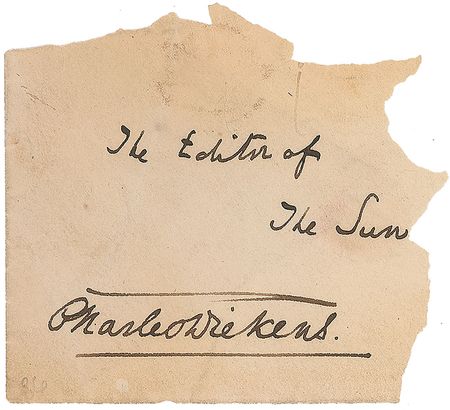 The Editor of
The Sun
Charles Dickens.